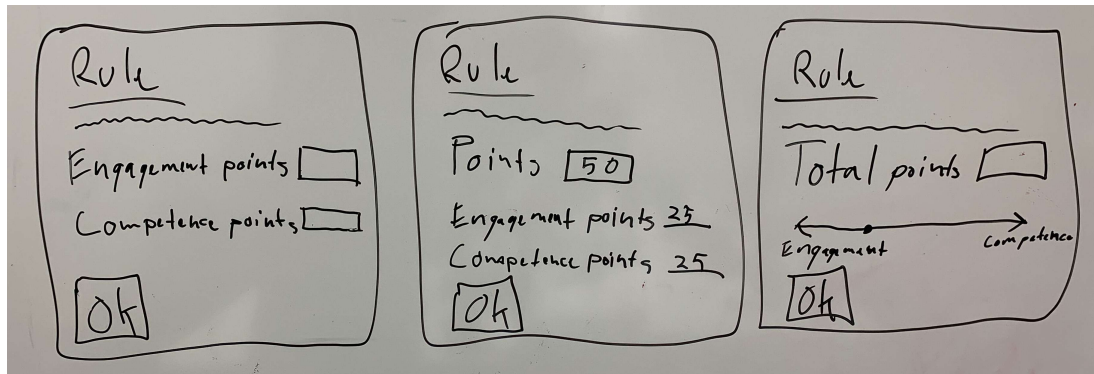 Rule
Engagement points
Competence points
Ok
Rule
Points 50
Engagement points 25
Competence points 25
Ok
Rule
Total points
Engagement
Competence
Ok